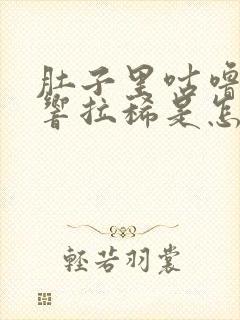 肚子里咕噜
响拉稀是怎
轻若羽裳